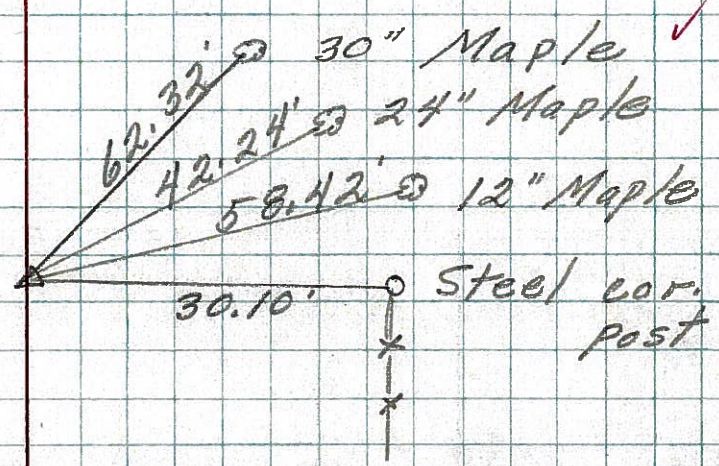 62.32' 30" Maple
42.24' 24" Maple
58.42' 12" Maple
30.10' Steel cor.
post